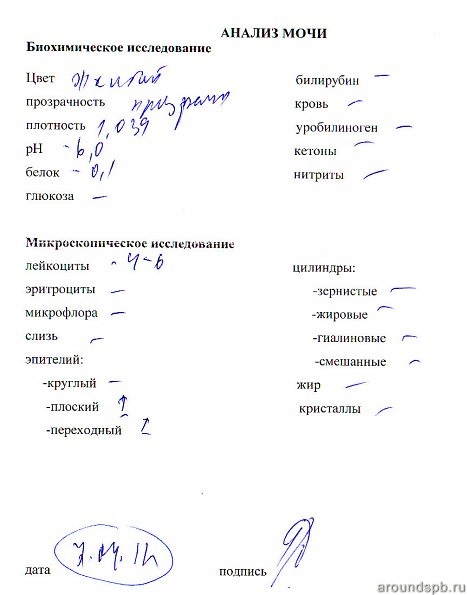 АНАЛИЗ МОЧИ
Биохимическое исследование
Цвет желтый
прозрачность прозрачн
плотность 1,039
pH - 6,0
белок - 0,1
глюкоза –
билирубин –
кровь –
уробилиноген –
кетоны –
нитриты –
Микроскопическое исследование
лейкоциты - 4-6
эритроциты –
микрофлора –
слизь –
эпителий:
-круглый –
-плоский ↑
-переходный
цилиндры:
-зернистые –
-жировые –
-гиалиновые –
-смешанные –
жир –
кристаллы –
дата
подпись
aroundspb.ru